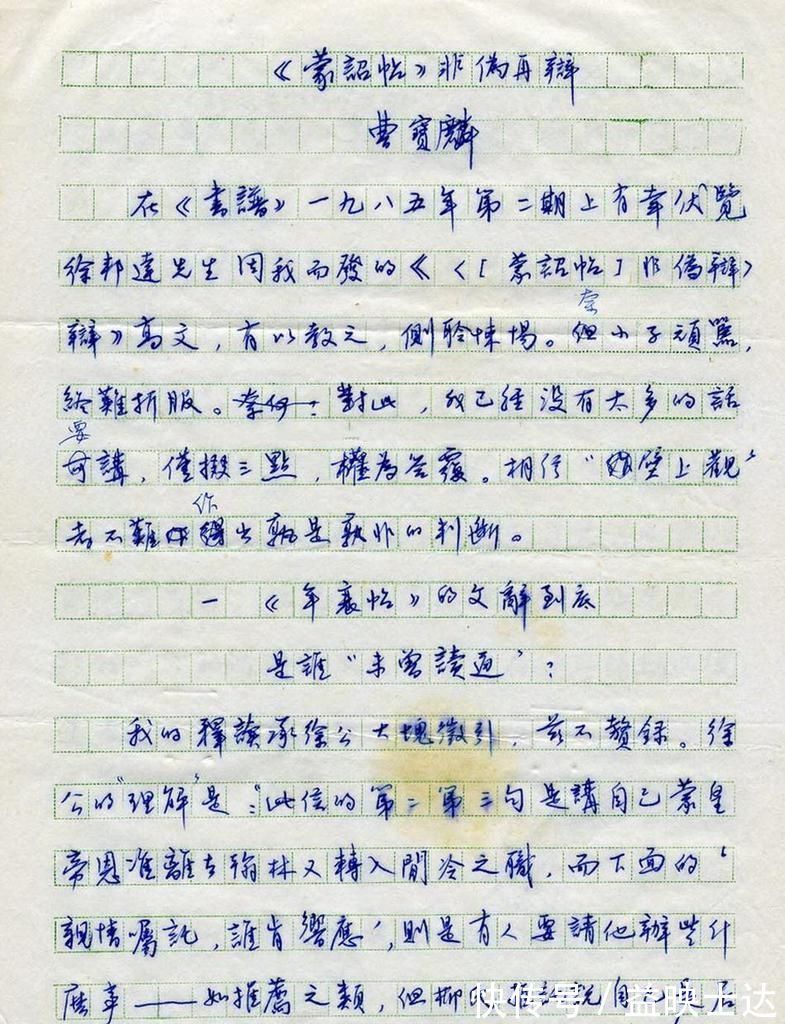 《蒙詔帖》非偽再辯
曹寶麟
在《書譜》一九八五年第二期上有幸伏覽
徐邦達先生因我而發的《〈[蒙詔帖]非偽辯〉
辯》高文，有以教之，側聆悚惕。但小子頑嚚，
終難折服。奈何？對此，我已經沒有太多的話
要
可講，僅掇三點，權為答覆。相信“壁上觀”
作
者不難得出孰是孰非的判斷。
一 《年衰帖》的文辭到底
是誰“未曾讀通”？
我的釋讀承徐公大塊徵引，茲不贅錄。徐
公的“理解”是：“此信的第二第三句是講自己蒙皇
帝恩准離去翰林又轉入閒冷之職，而下面的‘
親情囑託，誰肯響應’，則是有人要請他辦些什
麼事——如推薦之類，但柳
快传号/益映士达